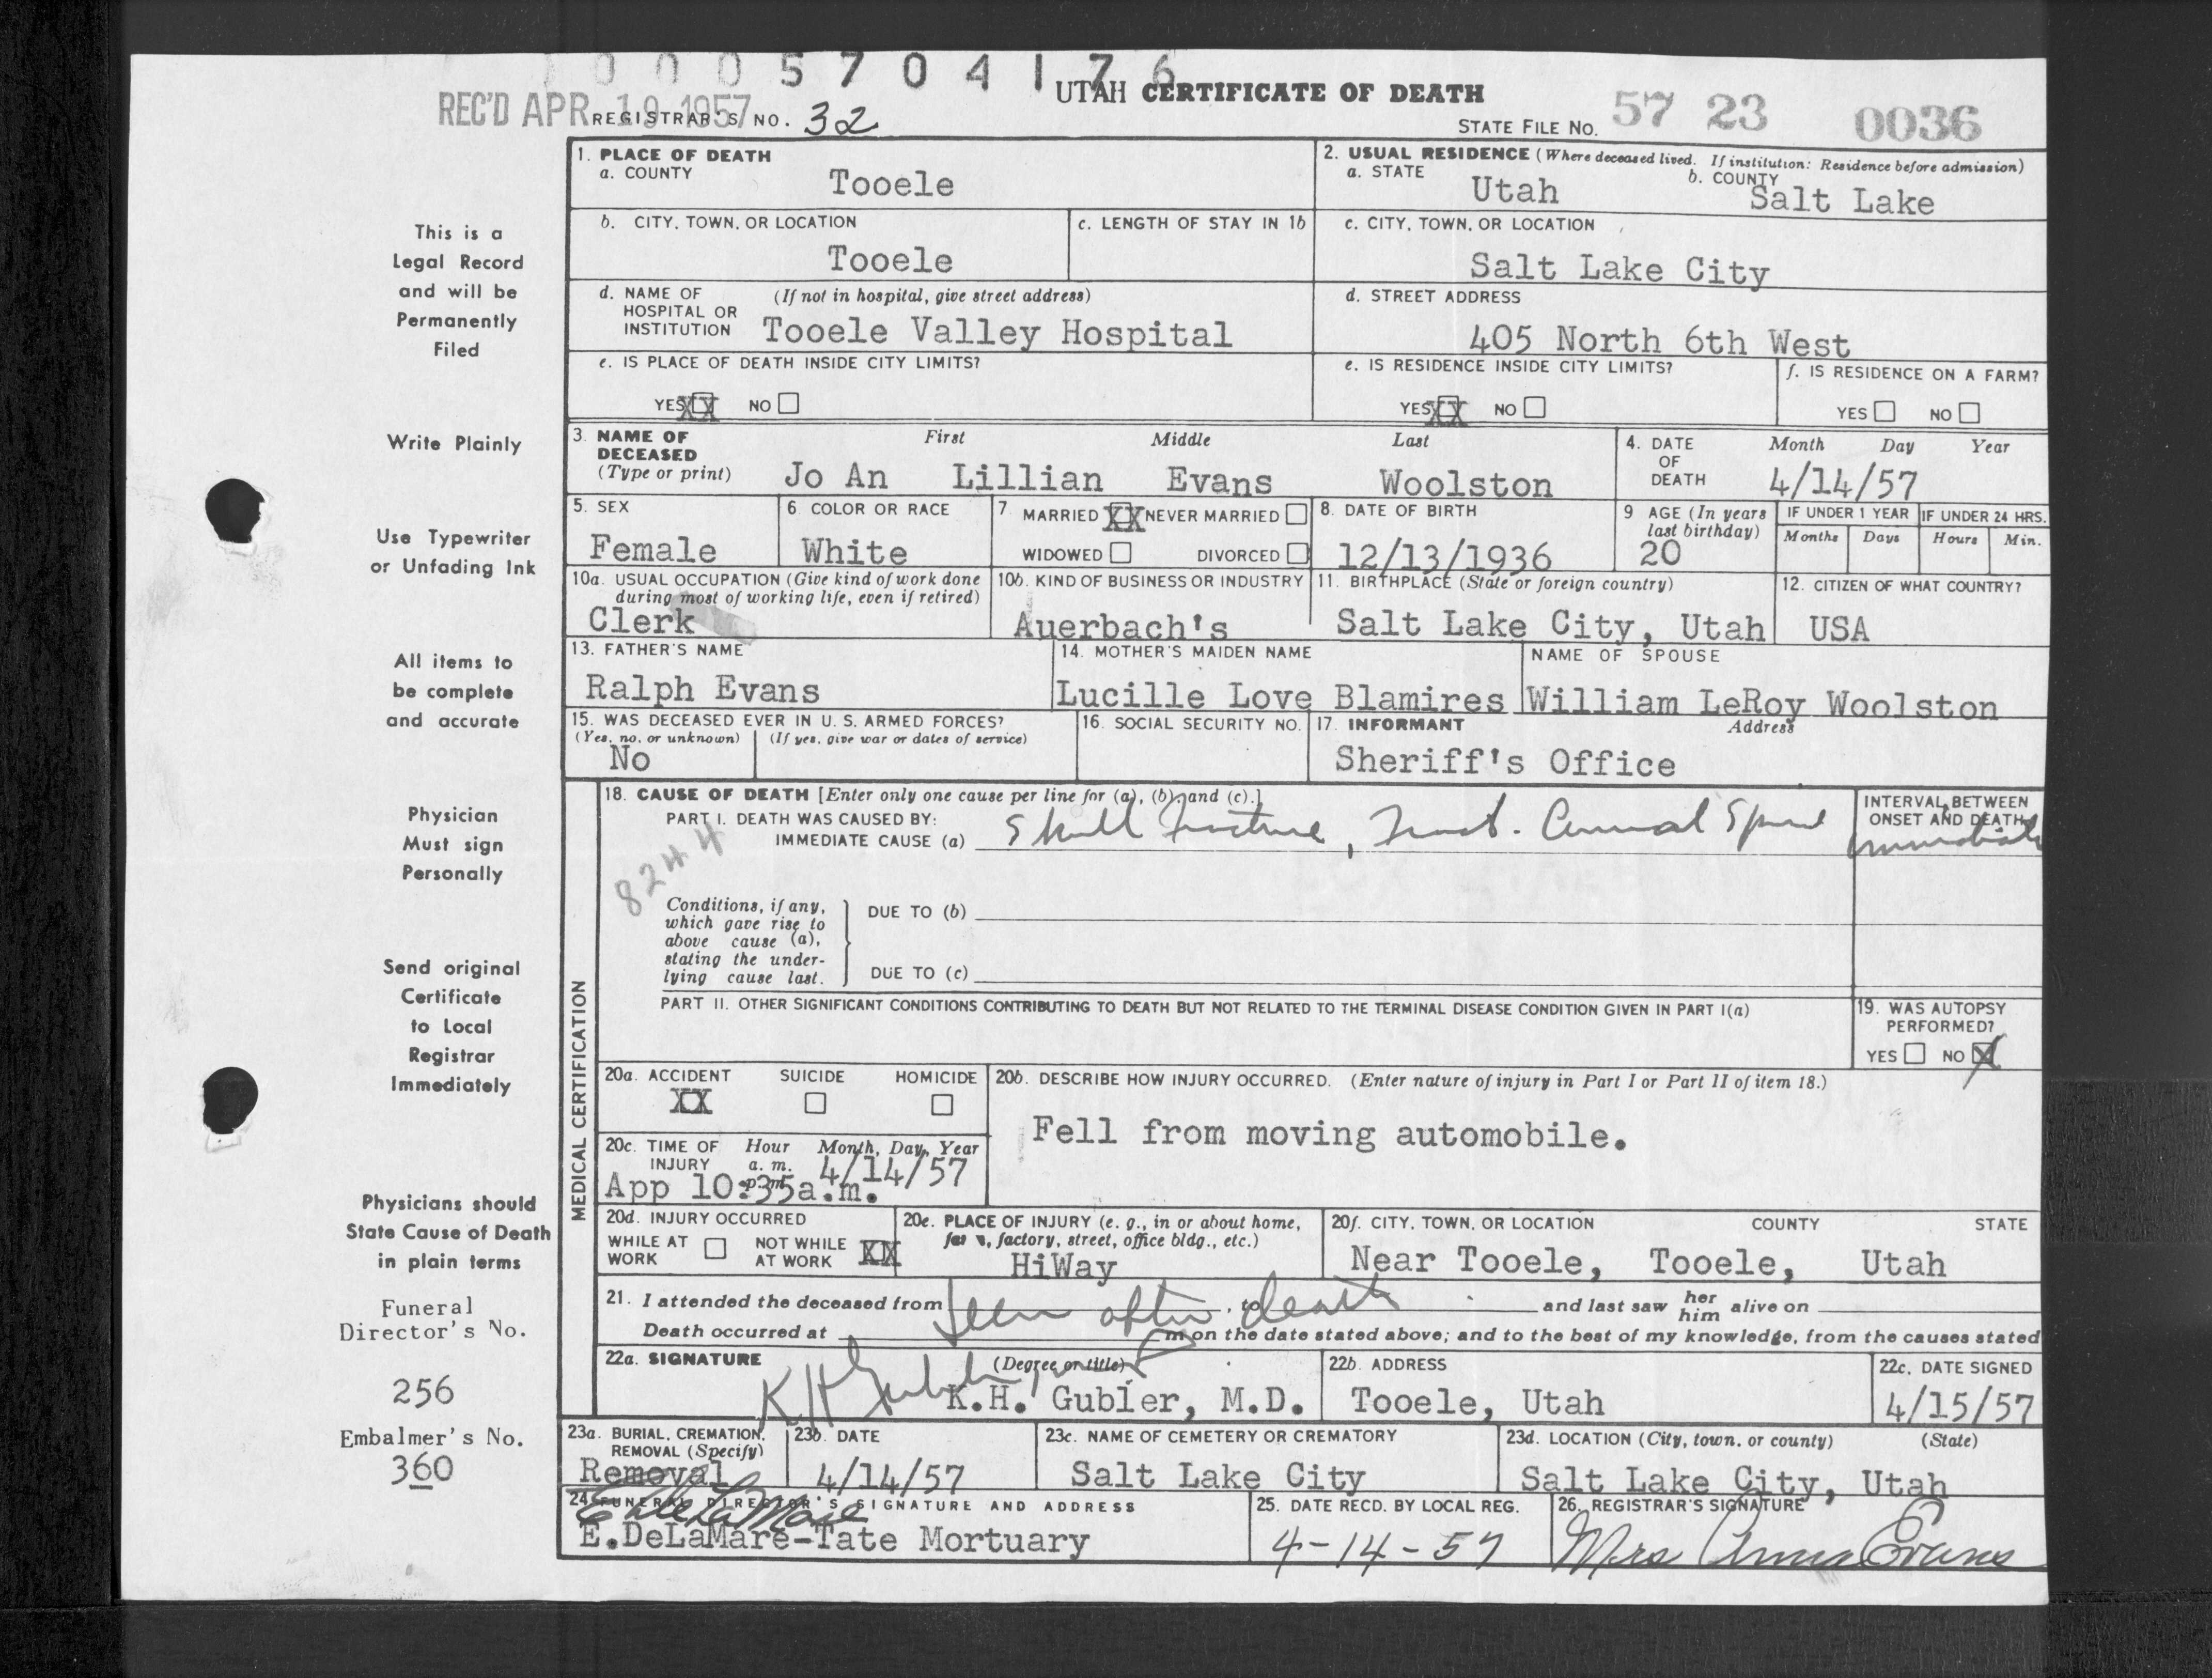 0 0 0 5 7 0 4 1 7 6
UTAH CERTIFICATE OF DEATH
REC'D APR 19 1957
REGISTRAR'S NO. 32
STATE FILE NO. 57 23 0036
This is a
Legal Record
and will be
Permanently
Filed
Write Plainly
Use Typewriter
or Unfading Ink
All items to
be complete
and accurate
Physician
Must sign
Personally
Send original
Certificate
to Local
Registrar
Immediately
Physicians should
State Cause of Death
in plain terms
Funeral
Director's No.
256
Embalmer's No.
360
1. PLACE OF DEATH
a. COUNTY
Tooele
2. USUAL RESIDENCE (Where deceased lived. If institution: Residence before admission)
a. STATE
Utah
b. COUNTY
Salt Lake
b. CITY, TOWN, OR LOCATION
Tooele
c. LENGTH OF STAY IN 1b
c. CITY, TOWN, OR LOCATION
Salt Lake City
d. NAME OF (If not in hospital, give street address)
HOSPITAL OR
INSTITUTION Tooele Valley Hospital
d. STREET ADDRESS
405 North 6th West
e. IS PLACE OF DEATH INSIDE CITY LIMITS?
YES XX NO
e. IS RESIDENCE INSIDE CITY LIMITS?
YES XX NO
f. IS RESIDENCE ON A FARM?
YES NO
3. NAME OF First Middle Last
DECEASED
(Type or print) Jo An Lillian Evans Woolston
4. DATE Month Day Year
OF
DEATH 4/14/57
5. SEX
Female
6. COLOR OR RACE
White
7. MARRIED XX NEVER MARRIED
WIDOWED DIVORCED
8. DATE OF BIRTH
12/13/1936
9 AGE (In years
last birthday)
20
IF UNDER 1 YEAR
Months Days
IF UNDER 24 HRS.
Hours Min.
10a. USUAL OCCUPATION (Give kind of work done
during most of working life, even if retired)
Clerk
10b. KIND OF BUSINESS OR INDUSTRY
Auerbach's
11. BIRTHPLACE (State or foreign country)
Salt Lake City, Utah
12. CITIZEN OF WHAT COUNTRY?
USA
13. FATHER'S NAME
Ralph Evans
14. MOTHER'S MAIDEN NAME
Lucille Love Blamires
NAME OF SPOUSE
William LeRoy Woolston
15. WAS DECEASED EVER IN U. S. ARMED FORCES?
(Yes, no, or unknown) (If yes, give war or dates of service)
No
16. SOCIAL SECURITY NO.
17. INFORMANT Address
Sheriff's Office
MEDICAL CERTIFICATION
18. CAUSE OF DEATH [Enter only one cause per line for (a), (b), and (c).]
PART I. DEATH WAS CAUSED BY:
IMMEDIATE CAUSE (a) Skull Fracture, Fract. Cervical Spine
INTERVAL BETWEEN
ONSET AND DEATH
Immediate
8244
Conditions, if any,
which gave rise to
above cause (a),
stating the under-
lying cause last.
DUE TO (b)
DUE TO (c)
PART II. OTHER SIGNIFICANT CONDITIONS CONTRIBUTING TO DEATH BUT NOT RELATED TO THE TERMINAL DISEASE CONDITION GIVEN IN PART I(a)
19. WAS AUTOPSY
PERFORMED?
YES NO X
20a. ACCIDENT SUICIDE HOMICIDE
XX
20b. DESCRIBE HOW INJURY OCCURRED. (Enter nature of injury in Part I or Part II of item 18.)
Fell from moving automobile.
20c. TIME OF Hour Month, Day, Year
INJURY a. m. 4/14/57
p. m.
App 10:35a.m.
20d. INJURY OCCURRED
WHILE AT WORK NOT WHILE AT WORK XX
20e. PLACE OF INJURY (e. g., in or about home,
farm, factory, street, office bldg., etc.)
HiWay
20f. CITY, TOWN, OR LOCATION COUNTY STATE
Near Tooele, Tooele, Utah
21. I attended the deceased from seen after, to death and last saw her him alive on
Death occurred at m on the date stated above; and to the best of my knowledge, from the causes stated
22a. SIGNATURE (Degree or title)
K H Gubler
K.H. Gubler, M.D.
22b. ADDRESS
Tooele, Utah
22c. DATE SIGNED
4/15/57
23a. BURIAL, CREMATION,
REMOVAL (Specify)
Removal
23b. DATE
4/14/57
23c. NAME OF CEMETERY OR CREMATORY
Salt Lake City
23d. LOCATION (City, town, or county) (State)
Salt Lake City, Utah
24. FUNERAL DIRECTOR'S SIGNATURE AND ADDRESS
E DeLaMare
E.DeLaMare-Tate Mortuary
25. DATE RECD. BY LOCAL REG.
4-14-57
26. REGISTRAR'S SIGNATURE
Mrs Anna Evans